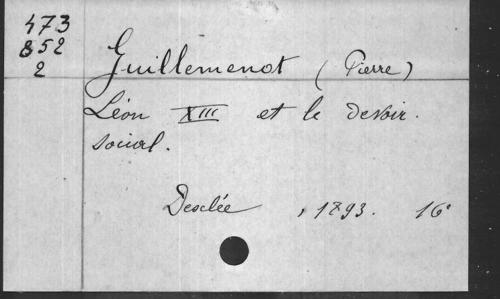 473
852
2
Guillemenot (Pierre)
Léon XIII et le devoir.
social.
Desclée, 1793. 16°